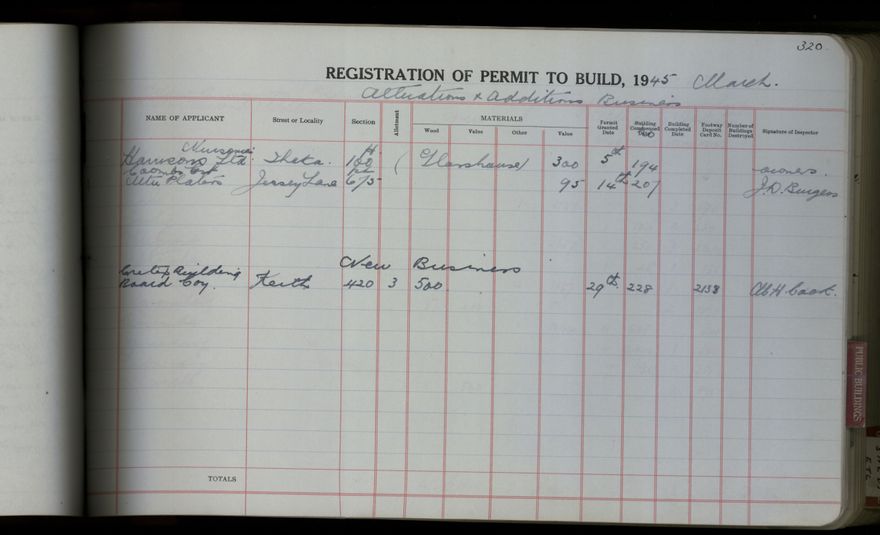 320
REGISTRATION OF PERMIT TO BUILD, 1945 March.
Alterations & Additions Business
NAME OF APPLICANT Street or Locality Section Allotment MATERIALS Permit Granted Date Building Commenced Date Building Completed Date Footway Deposit Card No. Number of Buildings Destroyed Signature of Inspector
Wood Value Other Value
Harrisons Ltd. Theta. 100 Glasshouse 300 5th 194 owners.
Jersey Lane 675 95 14th 207 J.D. Burgess
New Business
Building
Board Coy. Keith 420 3 500 29th 228 2138 Cook.
TOTALS
PUBLIC BUILDINGS